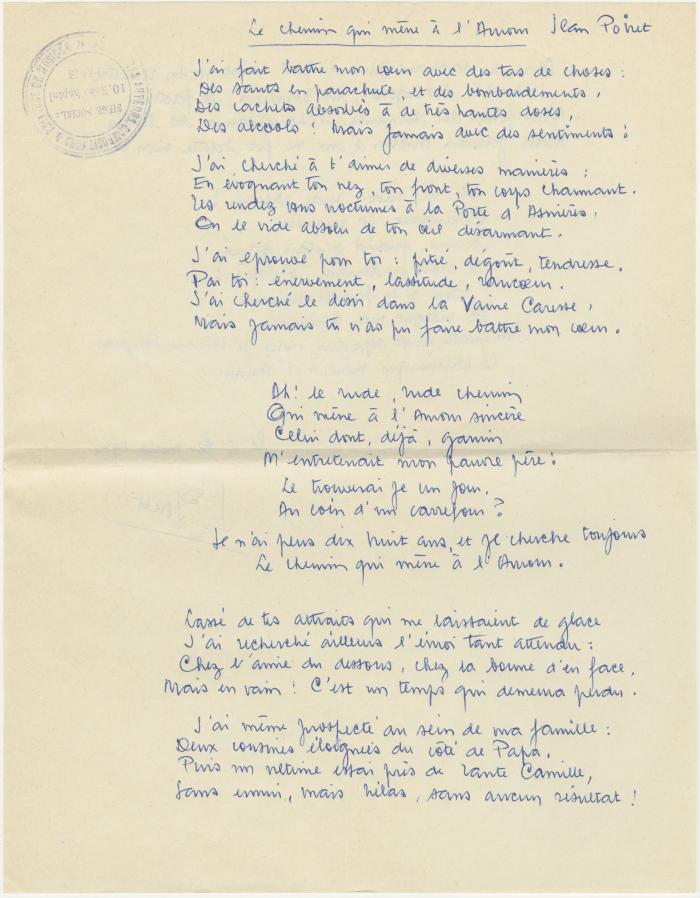 Le chemin qui mène à l'Amour Jean Poiret
J'ai fait battre mon cœur avec des tas de choses :
Des sauts en parachute, et des bombardements,
Des cachets absorbés à de très hautes doses,
Des alcools ! Mais jamais avec des sentiments !
J'ai cherché à t'aimer de diverses manières :
En évoquant ton nez, ton front, ton corps charmant.
Les rendez vous nocturnes à la Porte d'Asnières.
Ou le vide absolu de ton œil désarmant.
J'ai éprouvé pour toi : pitié, dégoût, tendresse.
Par toi : énervement, lassitude, rancœur.
J'ai cherché le désir dans la Vaine Caresse,
Mais jamais tu n'as pu faire battre mon cœur.
Ah! le rude, rude chemin
Qui mène à l'Amour sincère
Celui dont, déjà, gamin
M'entretenait mon pauvre père !
Le trouverai je un jour,
Au coin d'un carrefour ?
Je n'ai plus dix huit ans, et je cherche toujours
Le chemin qui mène à l'Amour.
Lassé de tes attraits qui me laissaient de glace
J'ai recherché ailleurs l'émoi tant attendu :
Chez l'amie du dessous, chez la bonne d'en face,
Mais en vain ! C'est un temps qui demeura perdu.
J'ai même prospecté au sein de ma famille :
Deux cousines éloignées du côté de Papa.
Puis un ultime essai près de Tante Camille,
Sans ennui, mais hélas, sans aucun résultat !
SIEGE SOCIAL: